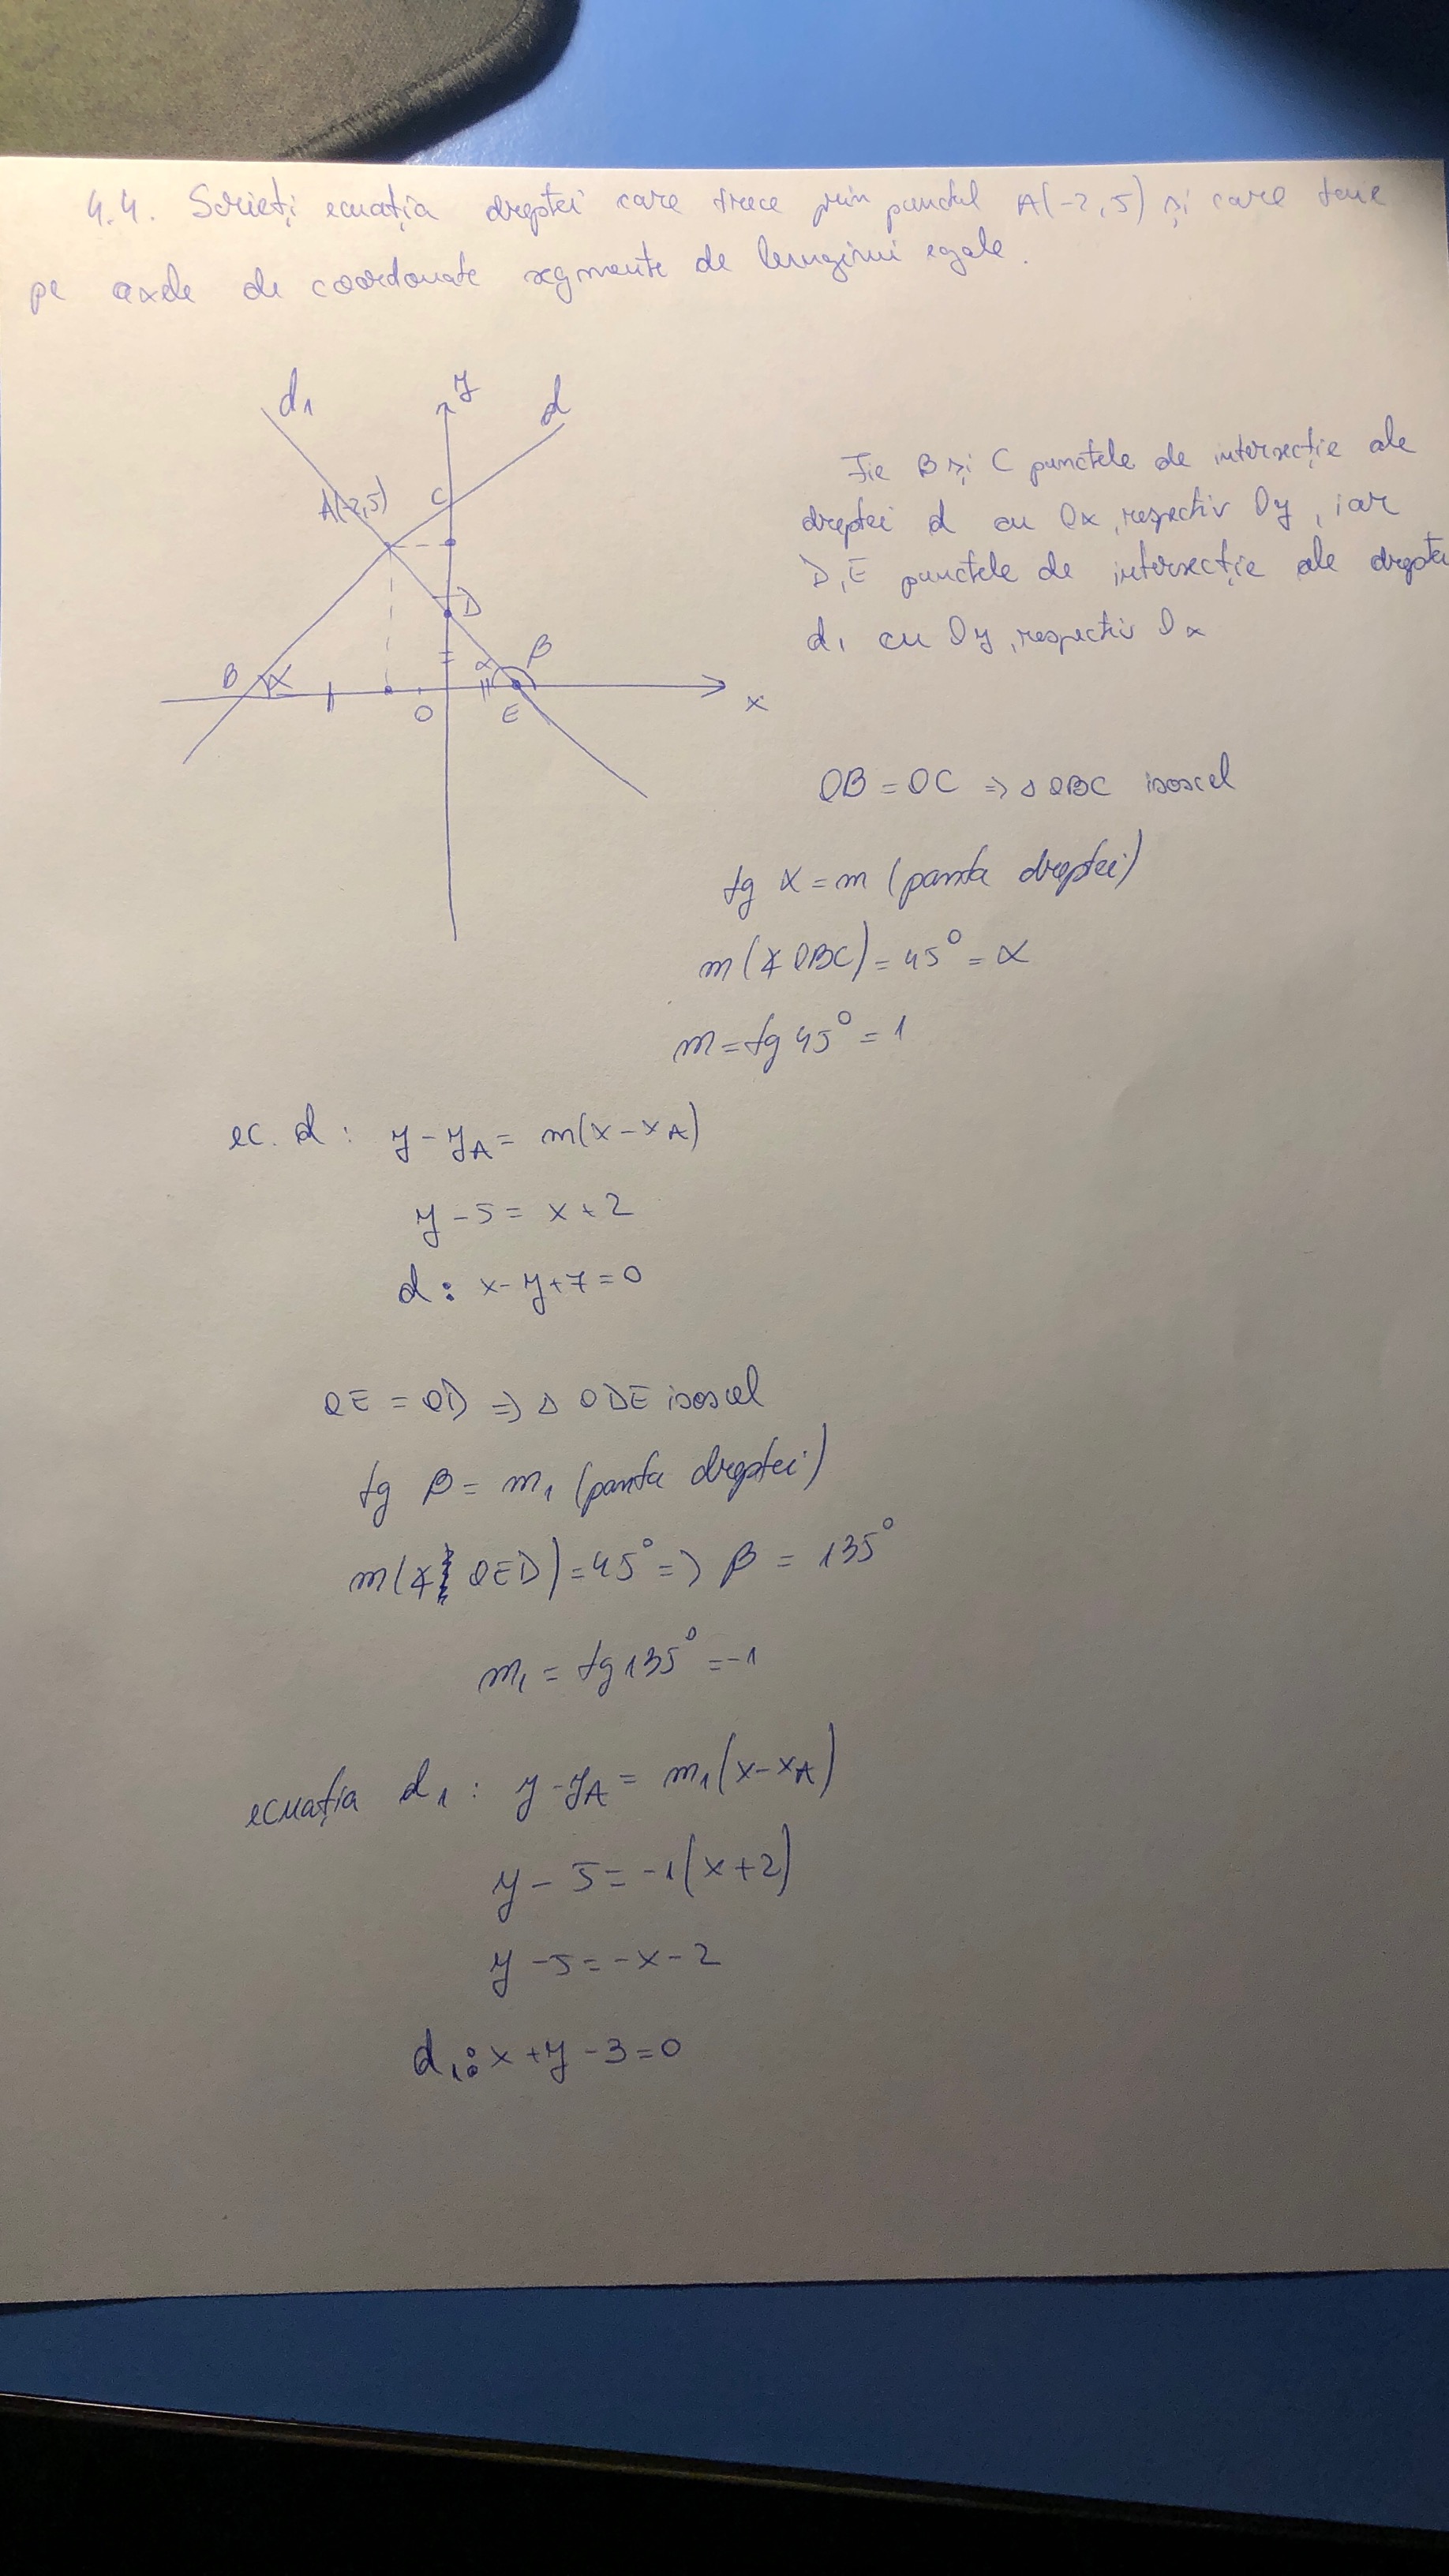 4.4. Scrieți ecuația dreptei care trece prin punctul A(-2,5) și care taie
pe axele de coordonate segmente de lungimi egale.
d₁
y
d
A(-2,5)
C
D
B
α
α
β
O
E
x
Fie B și C punctele de intersecție ale
dreptei d cu Ox, respectiv Oy, iar
D, E punctele de intersecție ale dreptei
d₁ cu Oy, respectiv Ox
OB = OC ⇒ △OBC isoscel
tg α = m (panta dreptei)
m(∡OBC) = 45° = α
m = tg 45° = 1
ec. d : y - yA = m(x - xA)
y - 5 = x + 2
d : x - y + 7 = 0
OE = OD ⇒ △ ODE isoscel
tg β = m₁ (panta dreptei)
m(∡ OED) = 45° ⇒ β = 135°
m₁ = tg 135° = -1
ecuația d₁ : y - yA = m₁(x - xA)
y - 5 = -1(x + 2)
y - 5 = -x - 2
d₁ : x + y - 3 = 0